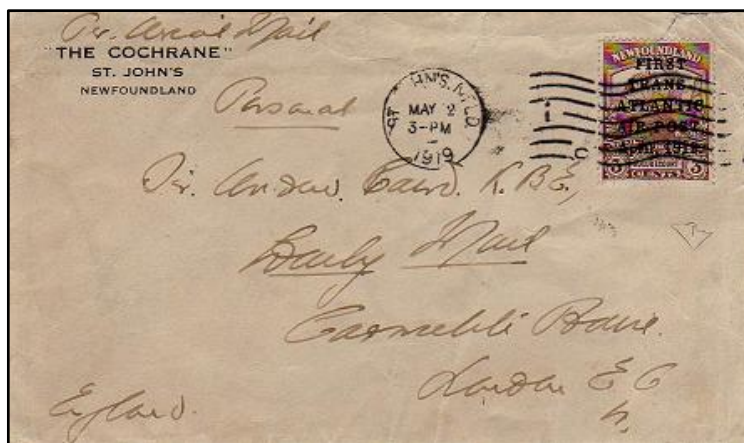 Per Aerial Mail
"THE COCHRANE"
ST. JOHN'S
NEWFOUNDLAND
Personal
ST. JHN'S. NFLD
MAY 2
3-PM
1919
NEWFOUNDLAND
FIRST
TRANS-
ATLANTIC
AIR POST
April, 1919.
3 CENTS 3
Sir Andrew Caird. K.B.E.,
Daily Mail
Carmelite House.
London E C
England.